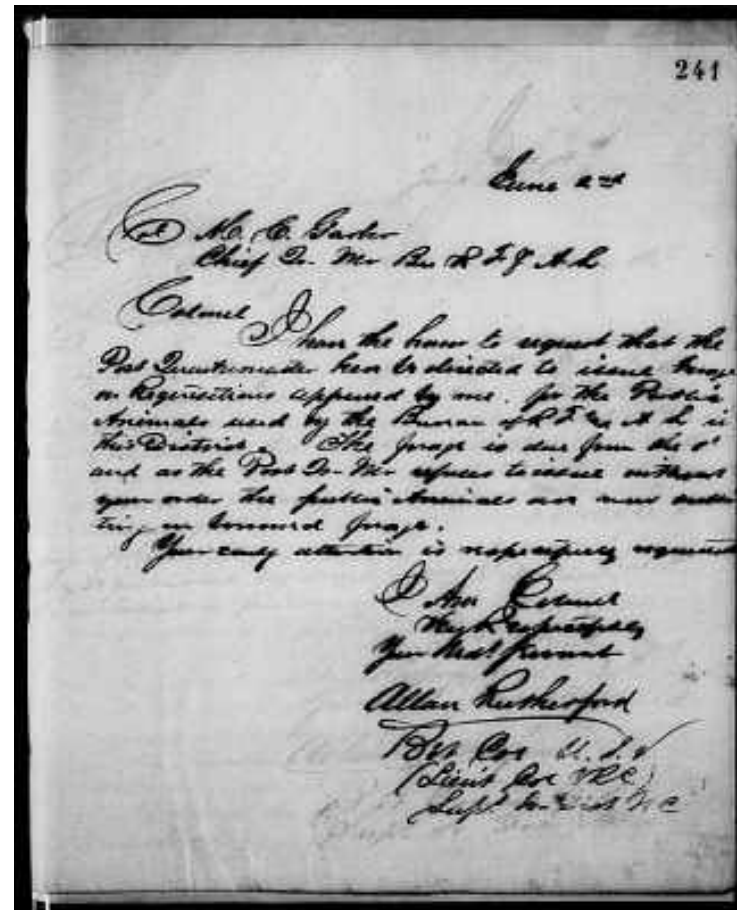 241
June 2nd
Col M. C. Garber
Chief Qr. Mr Bu R F & A L
Colonel
I have the honor to request that the
Post Quartermaster here be directed to issue forage
on Requisitions approved by me. for the Public
Animals used by the Bureau of R F & A L in
this District. The forage is due from the 1st
and as the Post Qr. Mr refuses to issue without
your order the public Animals are now
on borrowed forage.
Your early attention is respectfully requested
I Am Colonel
Very Respectfully
Your Obdt Servant
Allan Rutherford
Bvt Col U. S. V
(Lieut Col VRC)
Supt So. Dist N C